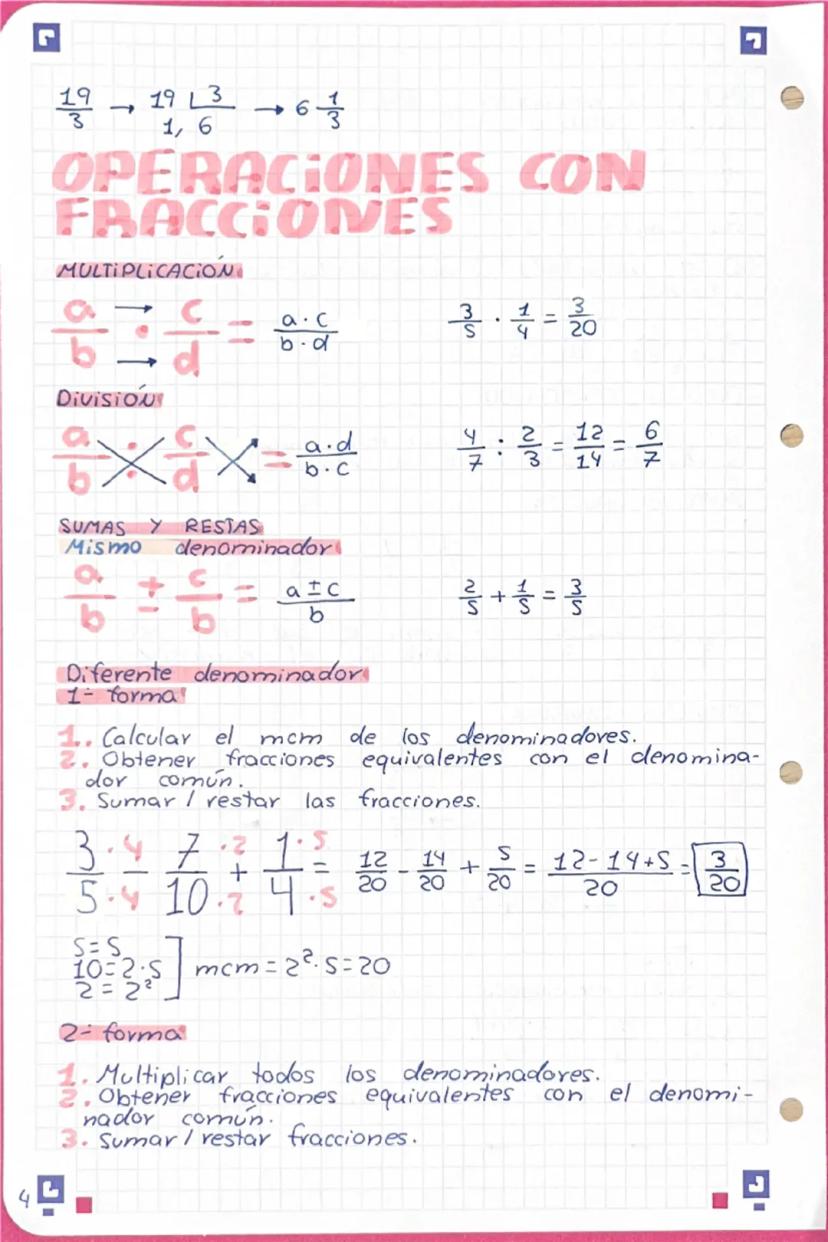 19/3 → 19 ⌊3 → 6 1/3
1, 6
OPERACIONES CON
FRACCIONES
MULTIPLICACIÓN
a/b · c/d = a·c/b·d    3/5 · 1/4 = 3/20
DIVISIÓN
a/b : c/d = a·d/b·c    4/7 : 2/3 = 12/14 = 6/7
SUMAS Y RESTAS
Mismo denominador
a/b ± c/b = a±c/b    2/5 + 1/5 = 3/5
Diferente denominador
1- forma
1. Calcular el mcm de los denominadores.
2. Obtener fracciones equivalentes con el denomina-
dor común.
3. Sumar / restar las fracciones.
3·4/5·4 - 7·2/10·2 + 1·5/4·5 = 12/20 - 14/20 + 5/20 = 12-14+5/20 = 3/20
5=5
10=2·5 ] mcm = 2²·5=20
2 = 2²
2- forma
1. Multiplicar todos los denominadores.
2. Obtener fracciones equivalentes con el denomi-
nador común.
3. Sumar / restar fracciones.
4